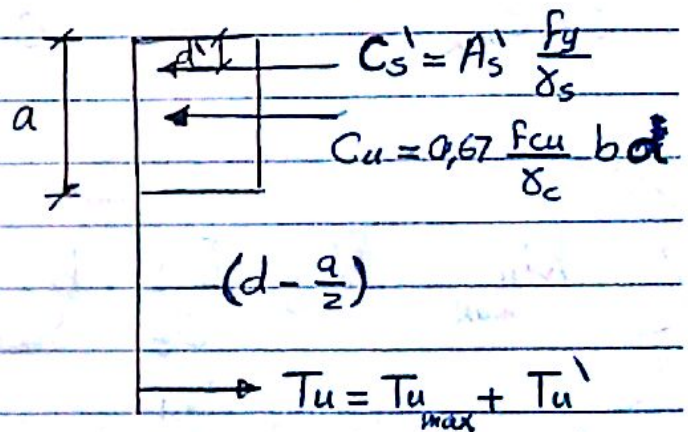 d` C_s` = A_s` \frac{f_y}{γ_s}
a
C_u = 0,67 \frac{f_{cu}}{γ_c} b a
(d - \frac{a}{2})
T_u = T_{u max} + T_u`